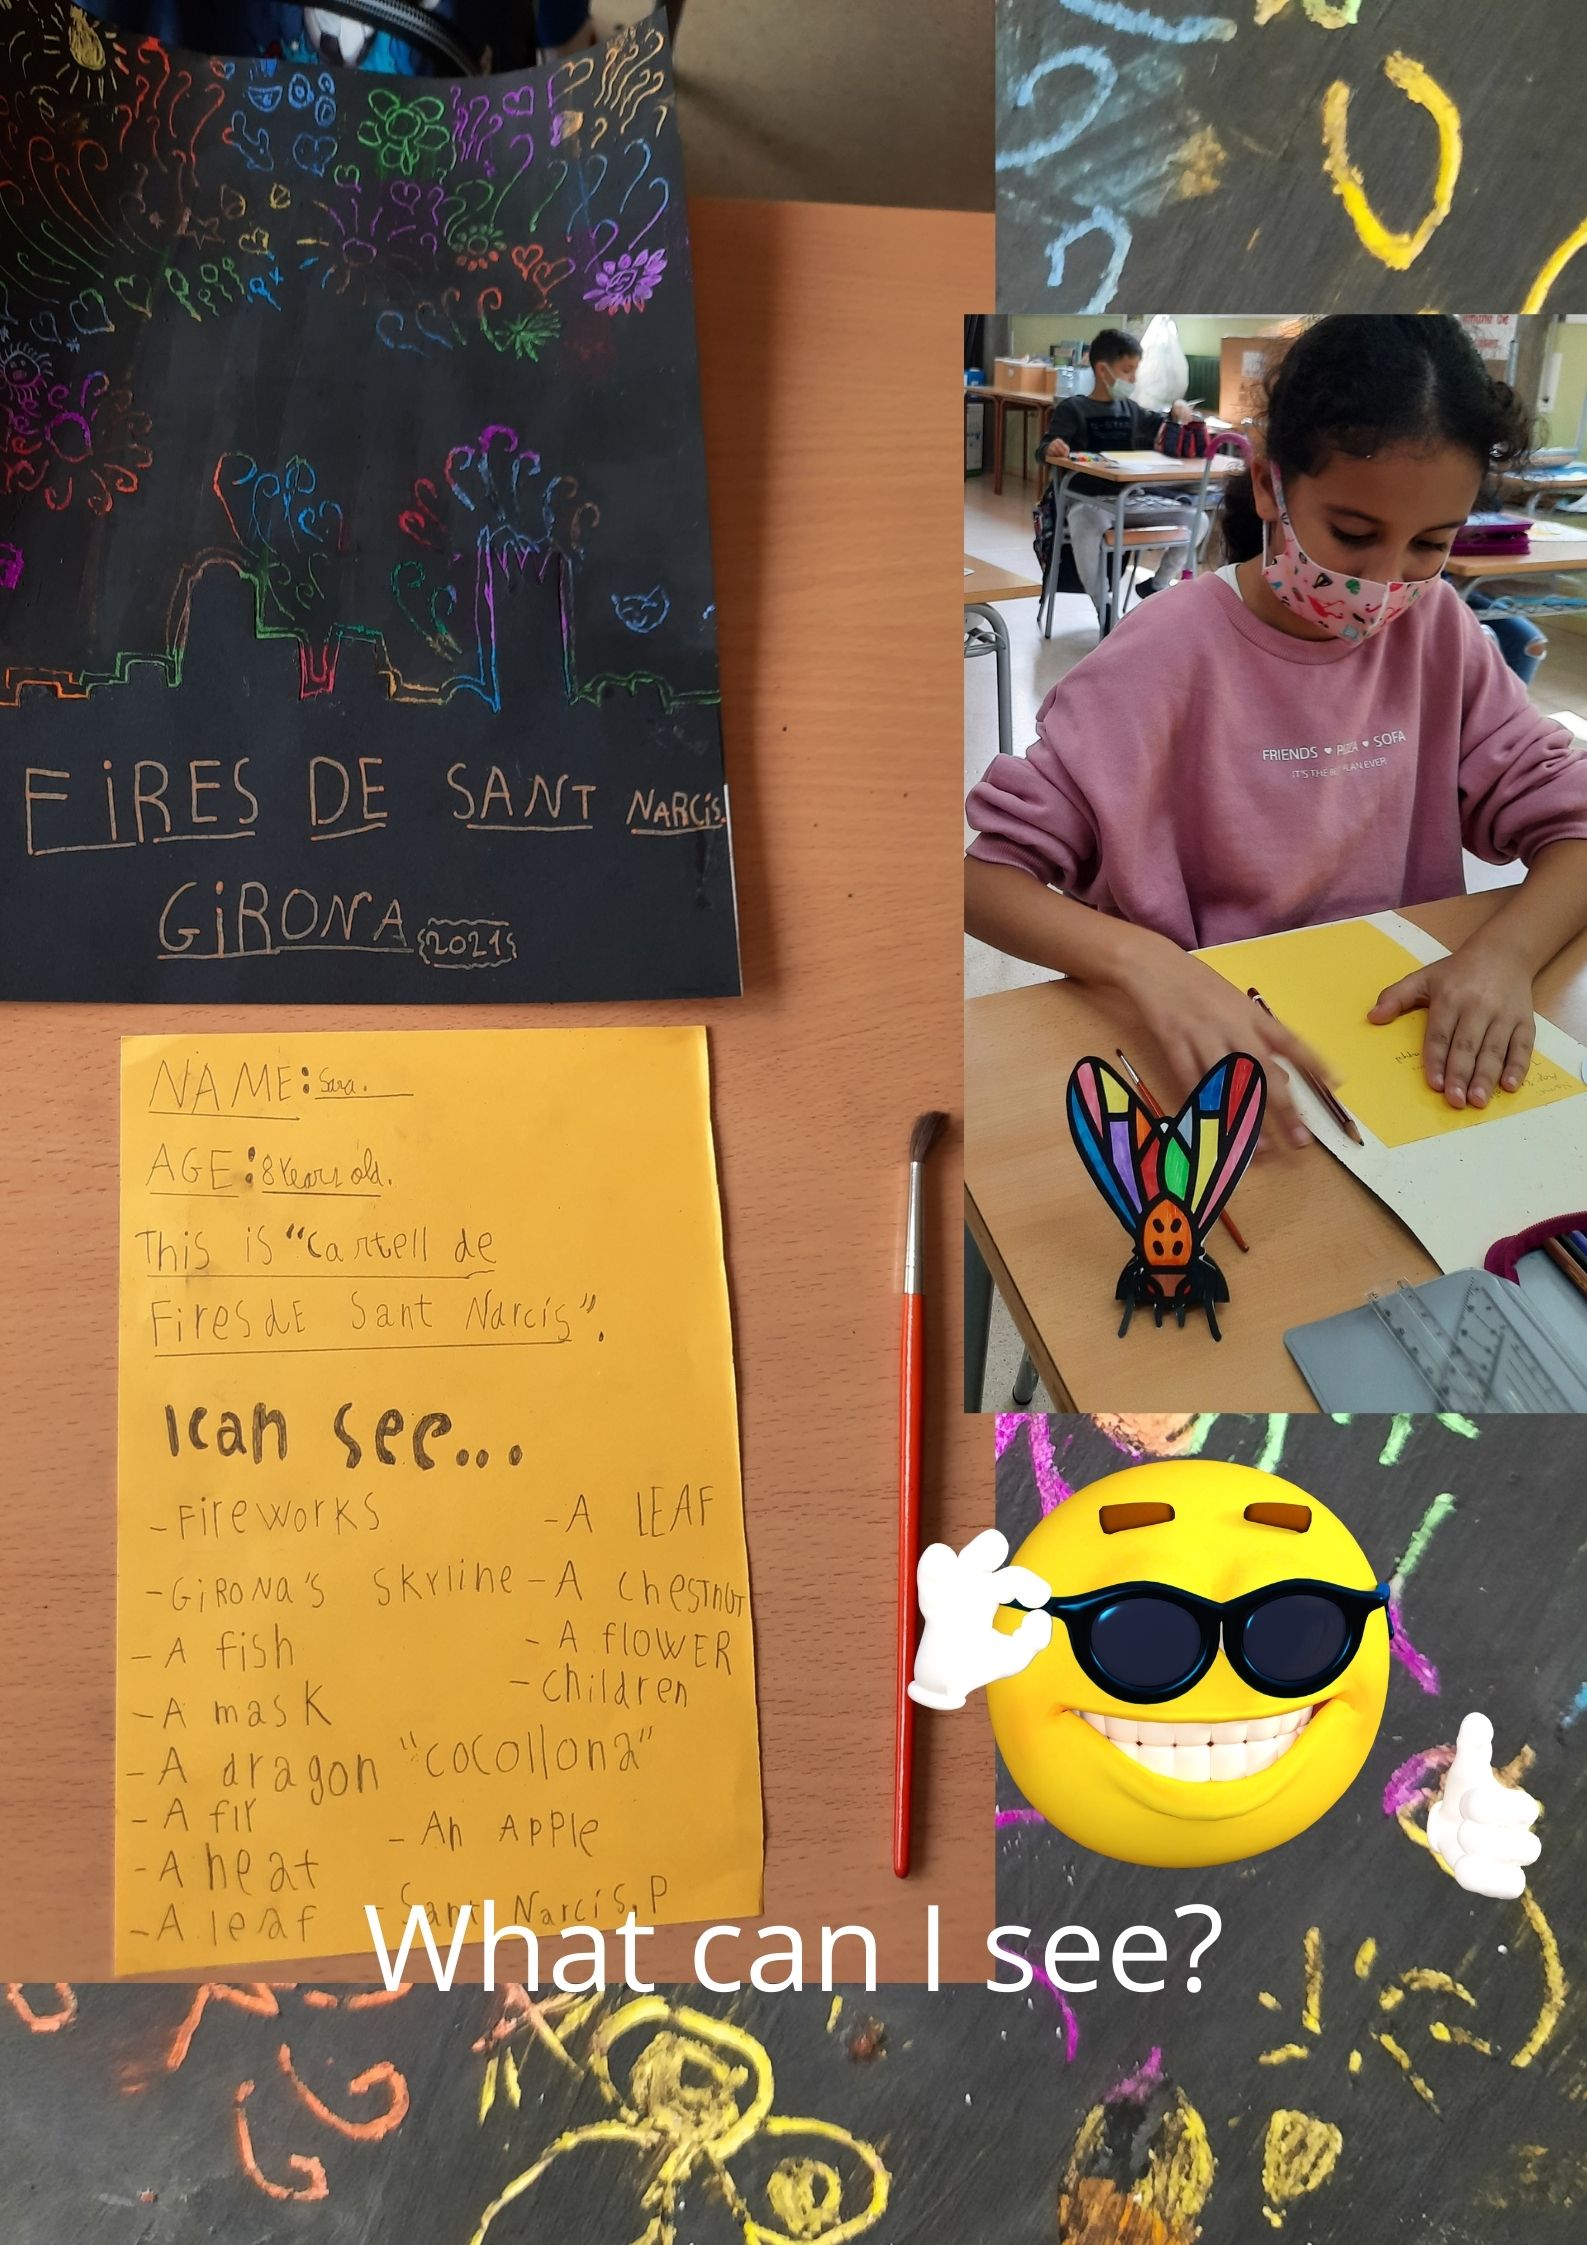 FIRES DE SANT NARCIS.
GIRONA 2021
NAME: Sara.
AGE: 8 Years old.
This is "Cartell de
Fires dE Sant Narcís".
I can see...
- Fireworks
- GIRONA'S SKYline
- A fish
- A mask
- A dragon "cocollona"
- A flY
- A heat
- A leaf
- A LEAF
- A chestnut
- A flOWER
- children
- An APPle
- Sant Narcís. P
FRIENDS ♥ PIZZA ♥ SOFA
IT'S THE BEST PLAN EVER
What can I see?